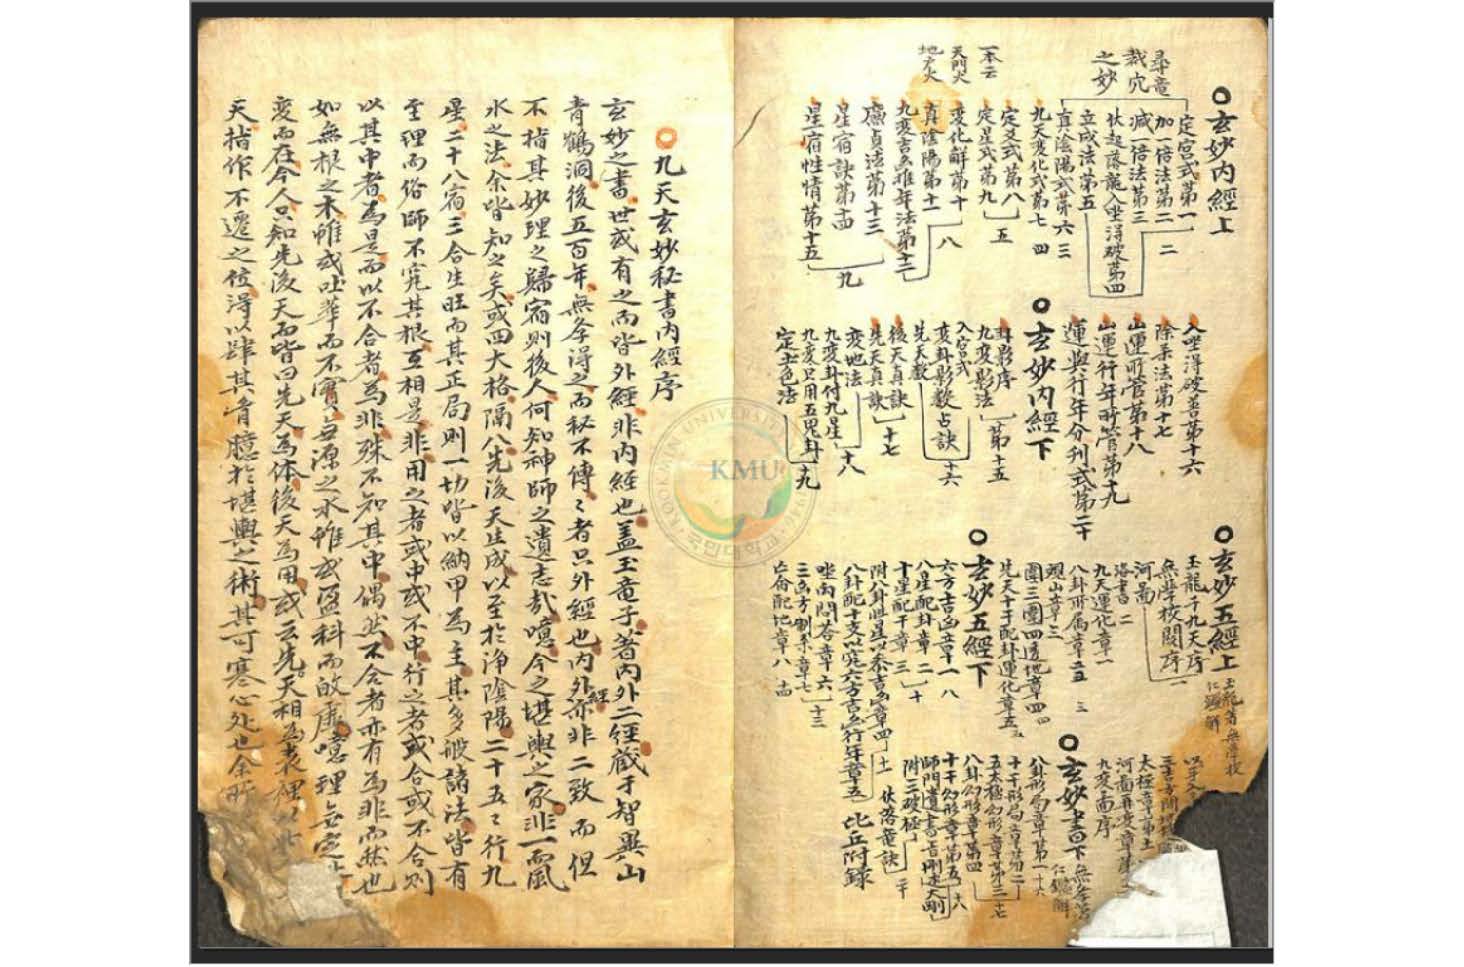 玄妙内經上
定宮式第一
加一倍法第二 二
减一倍法第三
仗起落龍入坐得破第四
立成法第五
真陰陽式第六 三
九天变化式第七 四
定爻式第八
定星式第九 五
变化解第十
真陰陽第十一 八
九变吉凶推年法第十二
廉貞法第十三
星宿訣第十四
星宿性情第十五
九
尋竜
裁穴
之妙
一本云
天門火
地户火
入坐得破善第十六
除杀法第十七
山運所管第十八
山運行年所管第十九
運與行年分列式第二十
玄妙内經下
卦影序
九变影法 第十五
入宮式
变卦影数占訣 十六
先天数
後天真訣
先天真訣 十七
变地法
九变卦付九星 十八
九变只用五鬼卦 十九
定土色法
玄妙五經上
玉龍子九天序
無學校閱序 一
河圖
洛書 二
九天運化章一
八卦所属章二 三
觀山章三
圖三圖四透地章四 四
先天十干配卦運化章五
玄妙五經下
六方吉凶章一 八
八星配卦章二 十
十星配干章三
附八卦將星以泰吉凶章四 十一
八卦配十支以宪六方吉凶行年章五
坐向問答章六 十三
三凶方制杀章七
亡命配地章八 十四
玉龍着無學校
仁鑑解
太極章第
河圖
九变圖序
玄妙書下
無学
仁鑑解
八卦形局章第一 十六
十干形局章第二
五太極幻形章第三 十七
八卦幻形章第四
十干幻形章第五 十八
師門遺書吉剛迷大剛
附二破極 二十
仗落竜訣
比丘附録
九天玄妙秘書内經序
玄妙之書世或有之而皆外經非内經也盖玉竜子著内外二經藏于智異山
青鶴洞後五百年無学得之而秘不傳〻者只外經也内外經亦非二致而但
不指其妙理之歸宿則後人何知神師之遺志哉噫今之堪輿之家非一而風
水之法余皆知之矣或四大格隔八先後天生成以至於浄陰陽二十五〻行九
星二十八宿三合生旺而其正局則一切皆以納甲為主其多般諸法皆有
至理而俗師不宪其根互相是非用之者或中或不中行之者或合或不合則
以其中者為是而以不合者為非殊不知其中偶然不合者亦有為非而然也
如無根之木雖或吐華而不實無源之水雖或盈科而的虛噫理無定
变而在今人只知先後天而皆曰先天為体後天為用或云先天相為表裡以此
天指作不遷之位得以肆其胷臆於堪輿之術其可寒心处也余所